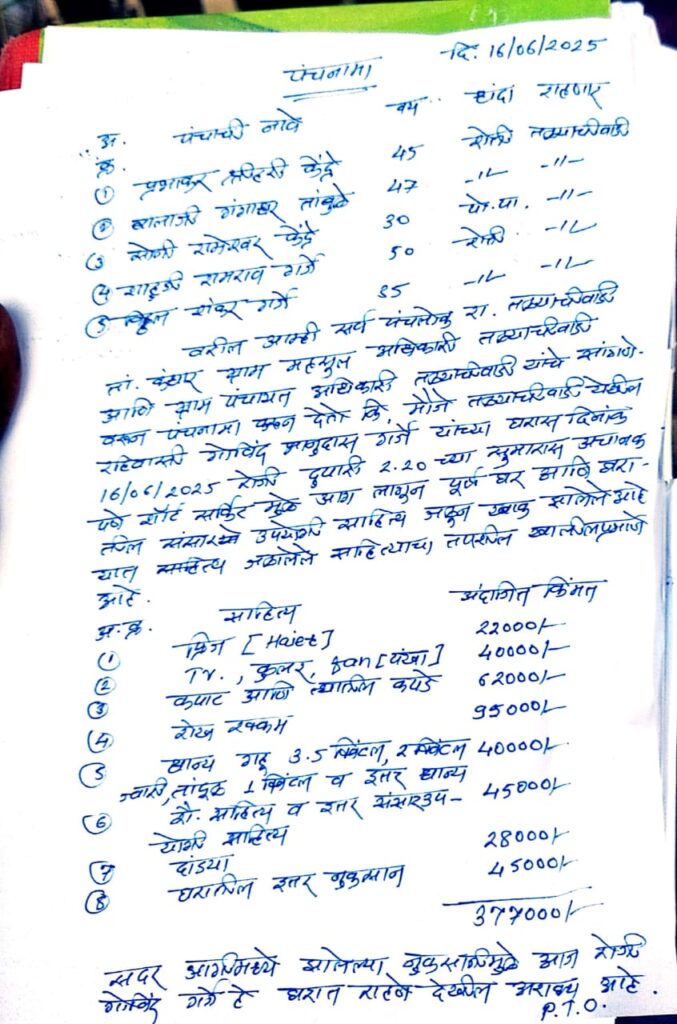 दि. 16/06/2025
पंचनामा
अ. क्र. पंचाची नावे वय धंदा राहणार
① प्रभाकर केंद्रे 45 शेती तळ्याचीवाडी
② बालाजी गंगाधर तांबुळे 47 -॥- -॥-
③ रामेश्वर केंद्रे 30 पो.पा. -॥-
④ शाहूजी रामराव गर्जे 50 शेती -॥-
⑤ विठ्ठल शंकर गर्जे 35 -॥- -॥-
वरील आम्ही सर्व पंचलोक रा. तळ्याचीवाडी
ता. कंधार ग्राम महसुल अधिकारी तळ्याचीवाडी
आणि ग्राम पंचायत अधिकारी तळ्याचीवाडी यांचे सांगणे-
वरून पंचनामा करून देतो कि, मौजे तळ्याचीवाडी येथील
रहिवासी गोविंद भानुदास गर्जे यांच्या घरास दिनांक
16/06/2025 रोजी दुपारी 2.20 च्या सुमारास अचानक
पणे शॉर्ट सर्किट मुळे आग लागून पूर्ण घर आणि घरा-
तील संसार उपयोगी साहित्य जळून खाक झालेले आहे
यात जळालेले साहित्याचा तपशील खालीलप्रमाणे
आहे.
अ.क्र. साहित्य अंदाजित किंमत
① फ्रिज [Haier] 22000/-
② TV., कुलर, fan [पंखा] 40000/-
③ कपाट आणि त्यातील कपडे 62000/-
④ रोख रक्कम 95000/-
⑤ धान्य गहू 3.5 क्विंटल, 2 क्विंटल 40000/-
ज्वारी, तांदूळ 1 क्विंटल व इतर धान्य
⑥ शै. साहित्य व इतर संसारउप- 45000/-
योगी साहित्य
⑦ दांड्या 28000/-
⑧ घरातील इतर नुकसान 45000/-
377000/-
सदर आगीमध्ये झालेल्या नुकसानीमुळे आज रोजी
गोविंद गर्जे हे घरात राहणे देखील अशक्य आहे.
P.T.O.